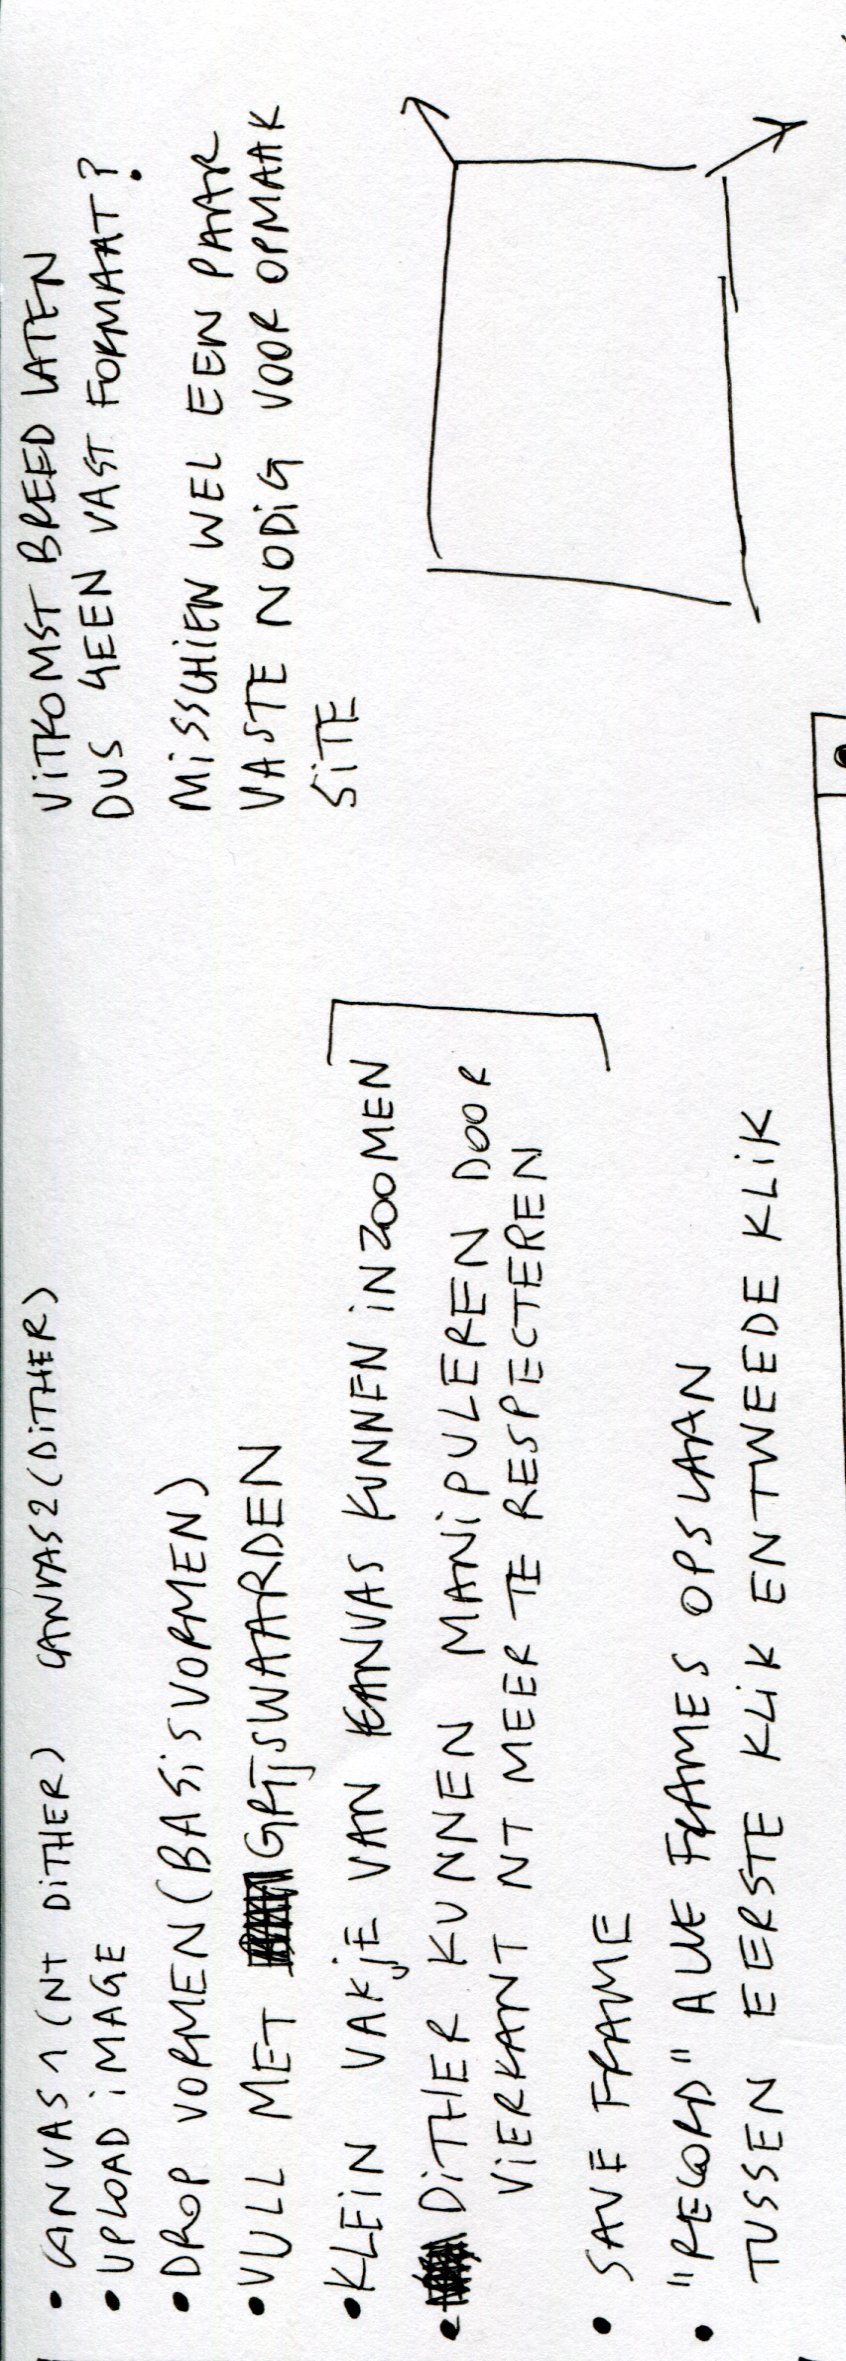 • CANVAS 1 (NT DITHER) CANVAS 2 (DITHER)
• UPLOAD IMAGE
• DROP VORMEN (BASISVORMEN)
• VULL MET GRIJSWAARDEN
• KLEIN VAKJE VAN KANVAS KUNNEN INZOOMEN
• DITHER KUNNEN MANIPULEREN DOOR
VIERKANT NT MEER TE RESPECTEREN
• SAVE FRAME
• "RECORD" ALLE FRAMES OPSLAAN
TUSSEN EERSTE KLIK EN TWEEDE KLIK
UITKOMST BREED LATEN
DUS GEEN VAST FORMAAT?
MISSCHIEN WEL EEN PAAR
VASTE NODIG VOOR OPMAAK
SITE